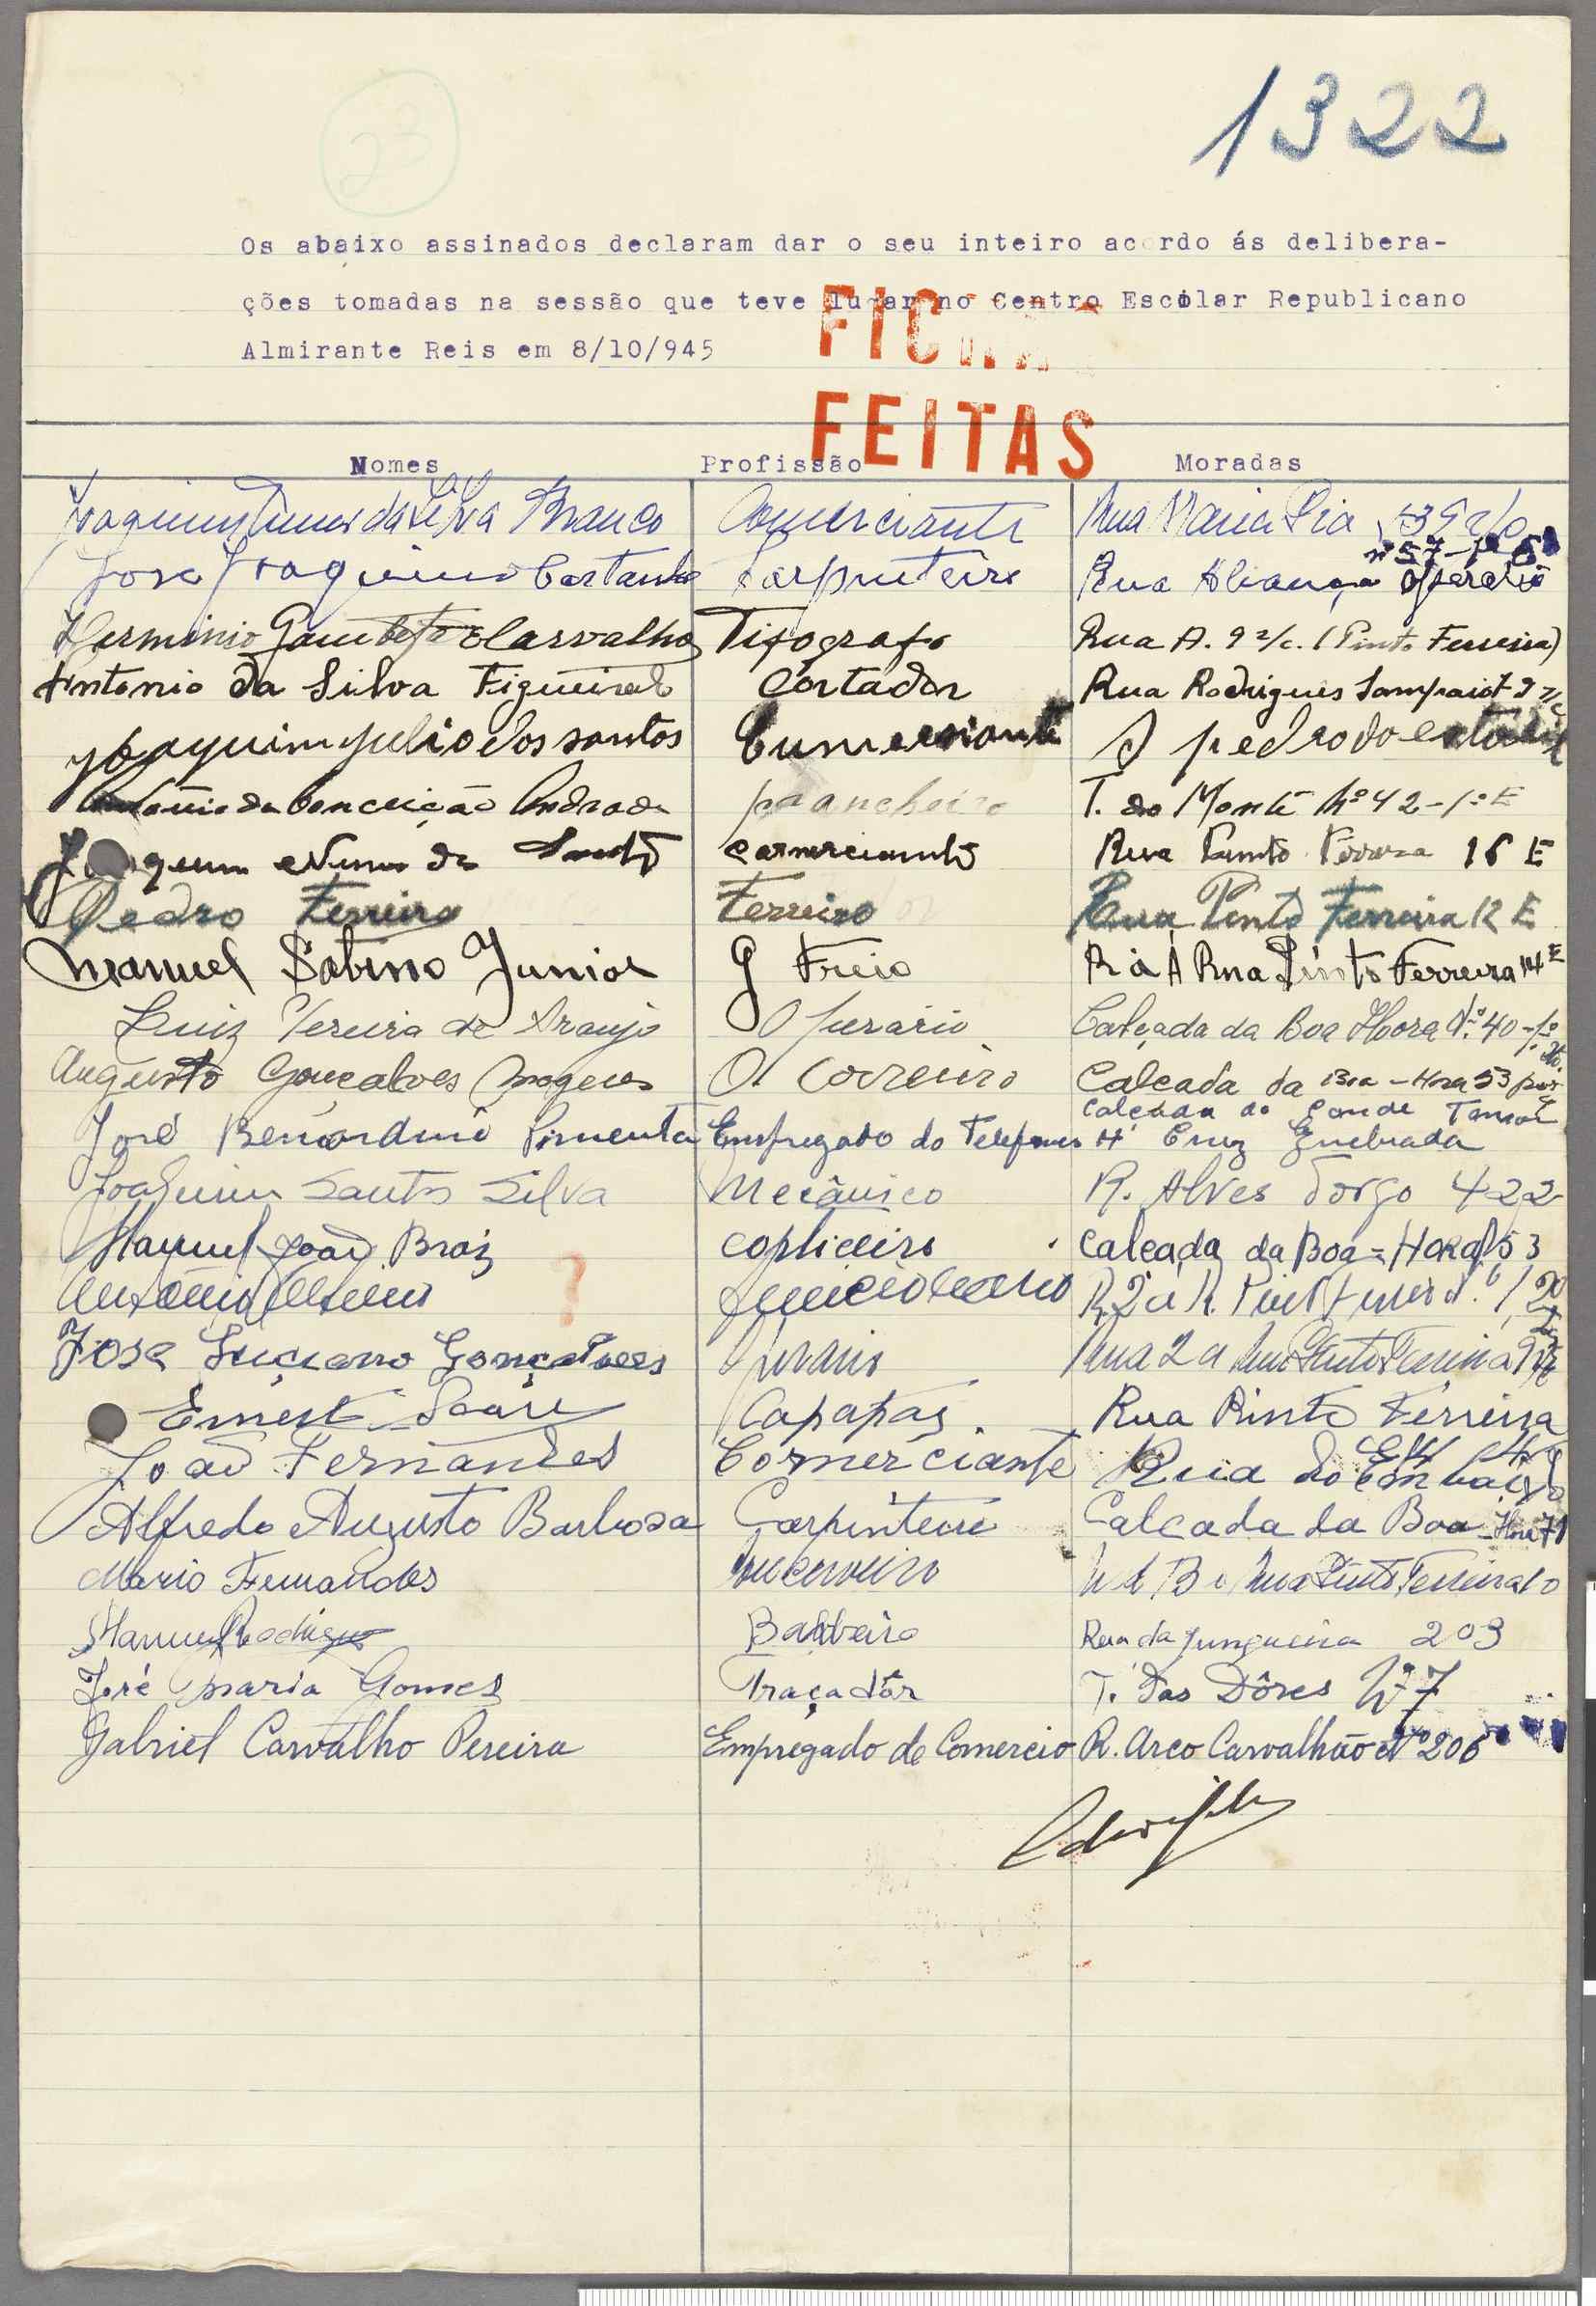 23
1322
Os abaixo assinados declaram dar o seu inteiro acordo ás delibera-
ções tomadas na sessão que teve lugar no Centro Escolar Republicano
Almirante Reis em 8/10/945
FICHAS
FEITAS
Nomes Profissão Moradas
Joaquim da Silva Branco Comerciante Rua Maria Pia
nº 57-1º E
José Joaquim Castanho Carpinteiro Rua Aliança Operária
Herminio Gambeta Carvalho Tipografo Rua A. 9 r/c. (Pinto Ferreira)
Antonio da Silva Figueiredo Cortador Rua Rodrigues Sampaio
Joaquim Julio dos santos Cumersiante S pedro do estoril
da Conceição Andrade T. do Monte Nº 42-1º E
Joaquim Nunes da comerciante Rua Pinto Ferreira 16 E
Pedro Ferreira Ferreiro Rua Pinto Ferreira 12 E
Manuel Sabino Junior G Freio R à A Rua Pinto Ferreira 14 E
Luiz Pereira de Araujo Operario Calçada da Boa Hora Nº 40-1º
Augusto Gonçalves Correeiro Calçada da Boa-Hora 53
Calçada do Conde
José Bernardino Pimenta Empregado do Telefones Cruz Quebrada
Joaquim Santos Silva Mecânico R. Alves Torgo 422
Manuel João Braz Calçada da Boa=Hora 53
?
José Luçiano Gonçalves Rua 2 a Rua Pinto Ferreira
Ernesto Capataz Rua Pinto Ferreira
João Fernandes Comerciante Rua do
Alfredo Augusto Barbosa Carpinteiro Calçada da Boa-Hora 71
Mario Fernandes B Rua Pinto Ferreira 10
Manuel Rodrigues Barbeiro Rua da Junqueira 203
José Maria Gomes Traçador T. das Dôres Nº 7
Gabriel Carvalho Pereira Empregado de Comercio R. Arco Carvalhão Nº 206